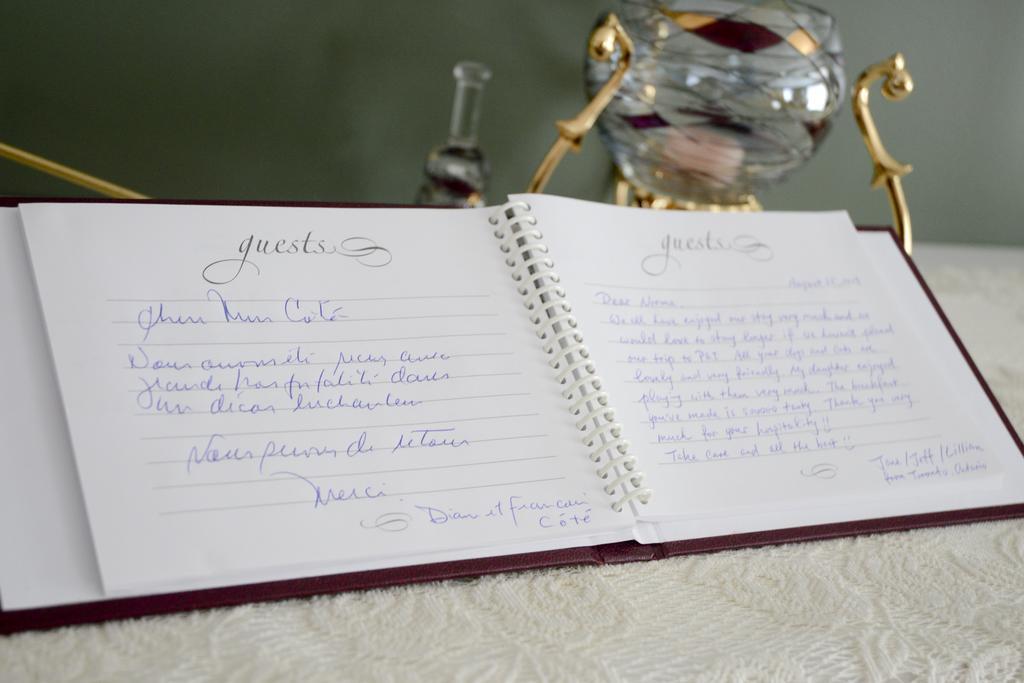 guests
Côté
grande hospitalité dans
un décor enchanteur
retour
Merci.
Diane et Francois
Côté
guests
August
Dear Norma
We all have enjoyed our stay very much and we
would love to stay longer if we haven't planed
our trip to PEI. All your dogs and cats are
lovely and very friendly. My daughter enjoyed
playing with them very much. The breakfast
you've made is soooo tasty. Thank you very
much for your hospitality!!
Take care and all the best!!
Jeff / Lillian
from Toronto, Ontario